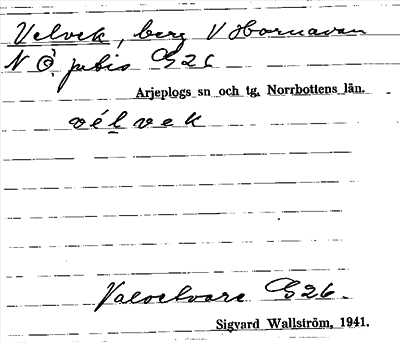 Velvek, berg V Hornavan
N Ö jutis G26
Arjeplogs sn och tg. Norrbottens län.
vélvek
Valvekvare G26.
Sigvard Wallström, 1941.